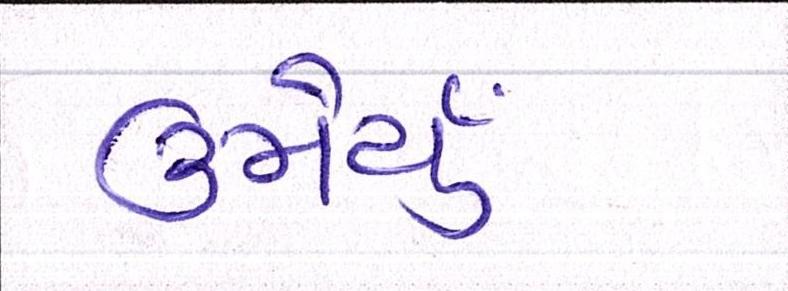 ઉમેર્યું